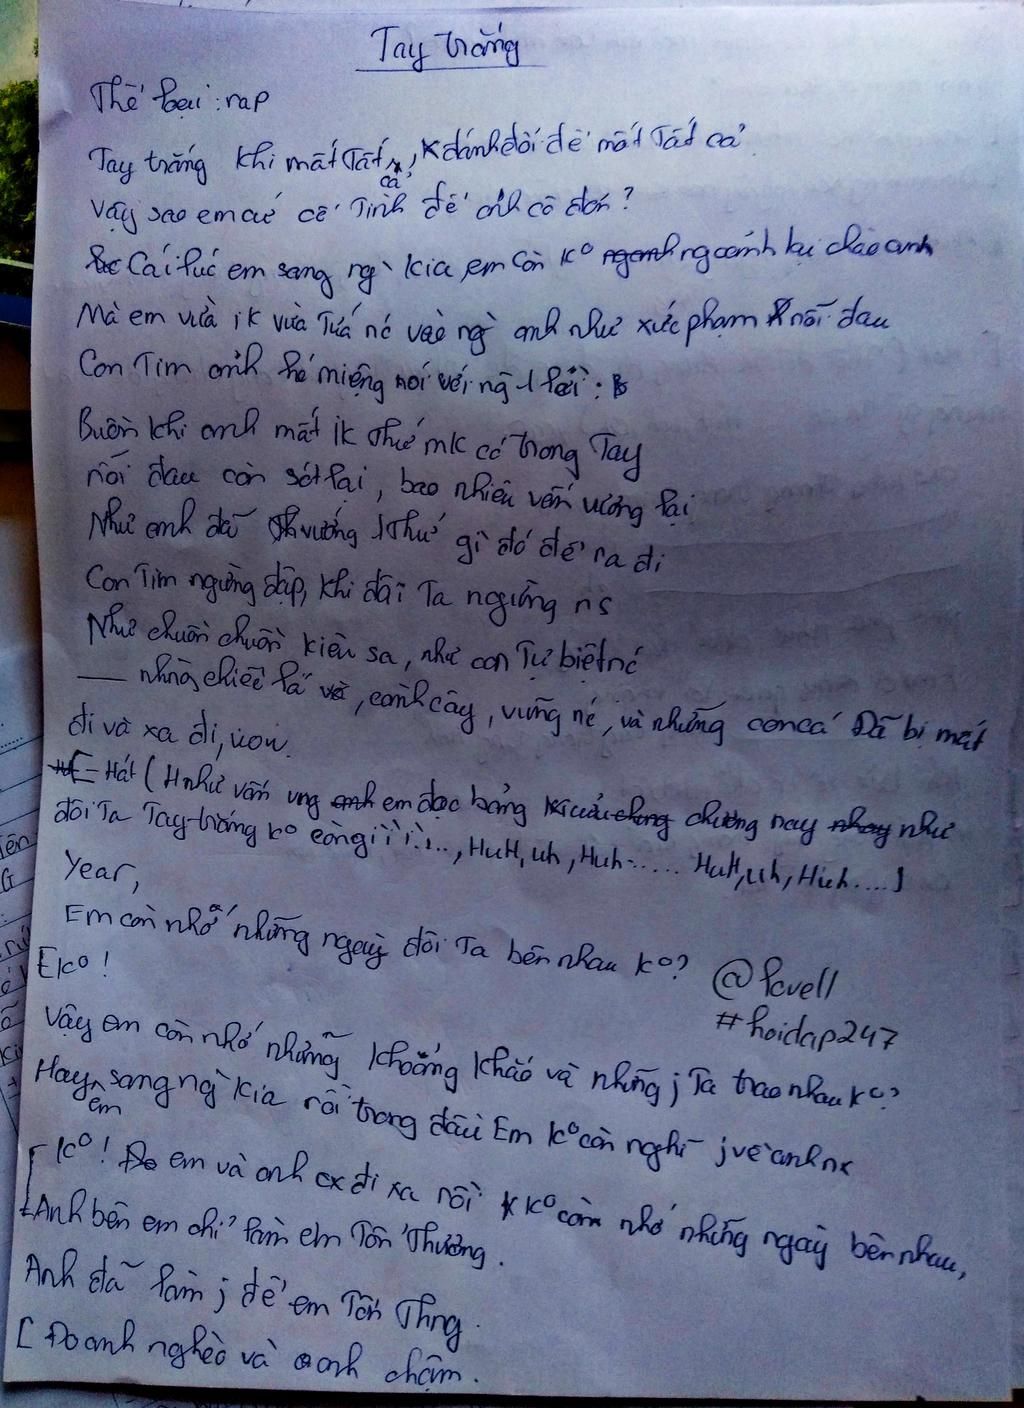 Tay trắng
Thể loại : rap
Tay trắng khi mất tất cả, đánh đổi để mất tất cả
Vậy sao em cứ cố tình để anh cô đơn?
Cái lúc em sang ng` kia, em còn k° ngoảnh lại chào anh
Mà em vừa ik vừa nó vào ng` anh như xúc phạm nỗi đau
Con tim anh hé miệng nói với ng` 1 lời :
Buồn khi anh mất ik thứ mk có trong tay
nỗi đau còn sót lại, bao nhiêu vấn vương lại
Như anh đã vướng 1 thứ gì đó để ra đi
Con tim ngừng đập, khi đôi ta ngừng ns
Như chuồn chuồn kiêu sa, như con tự biệt nó
— những chiếc lá, cành cây, vũng nc, và những con cá đã bị mất
đi và xa đi, wou
- Hát ( như vấn vng em đọc bảng chương nay như
đôi ta tay trắng k° còn gì ì ì..., HuH, uh, Huh..... HuH, uh, Huh....)
Year,
Em còn nhớ những ngày đôi ta bên nhau k°?
[ K° !
@lcvell
#hoidap247
Vậy em còn nhớ những khoảng khắc và những j ta trao nhau k°?
Hay em sang ng` kia rồi trong đầu Em k° còn nghĩ j về anh nx
[ K° ! em và anh cx đi xa rồi k° còn nhớ những ngày bên nhau,
Anh bên em chỉ làm em tổn thương.
Anh đã làm j để em tổn thng.
[ Do anh nghèo và anh chậm.